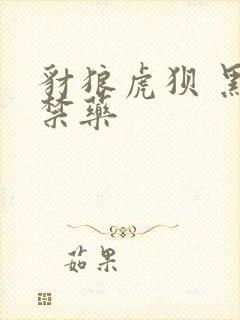 豺狼虎狈
禁藥
茹果